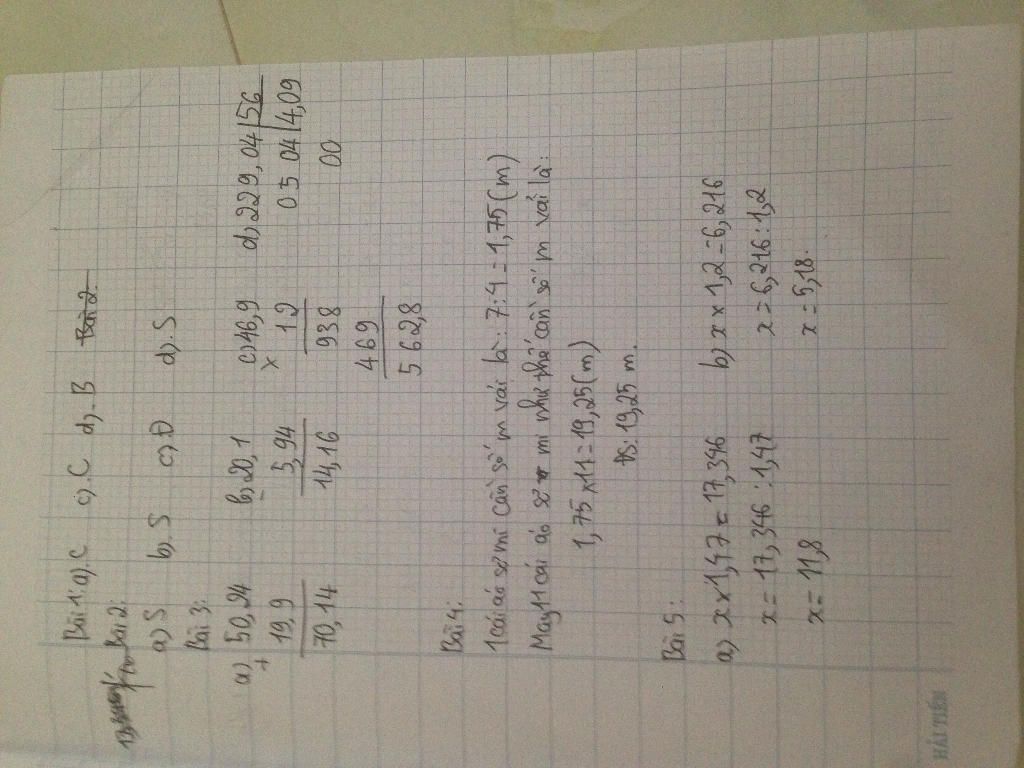 Bài 1: a). C c). C d). B Bài 2:
Bài 2:
a) S b). S c). Đ d). S
Bài 3:
a) 50,24 b) 20,1 c) 46,9 d) 229,04 | 56
+ 19,9 - 5,94 x 12 05 04 | 4,09
70,14 14,16 938 00
469
562,8
Bài 4:
1 cái áo sơ mi cần số m vải là: 7:4 = 1,75 (m)
May 11 cái áo sơ mi như thế cần số m vải là:
1,75 x 11 = 19,25 (m)
ĐS: 19,25 m.
Bài 5:
a) x x 1,47 = 17,346 b) x x 1,2 = 6,216
x = 17,346 : 1,47 x = 6,216 : 1,2
x = 11,8 x = 5,18.
HẢI TIẾN